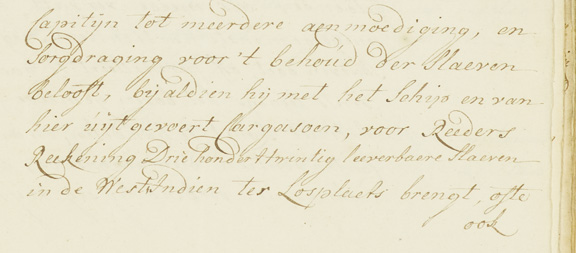 Capitijn tot meerdere aenmoediging, en
Sorgdraging voor 't behoud der Slaeven
belooft, bij aldien hij met het Schip en van
hier uijtgevoert Cargasoen, voor Reeders
Reekening Driehonderttwintig leeverbaere Slaeven
in de WestIndien ter Losplaets brengt, ofte
ook